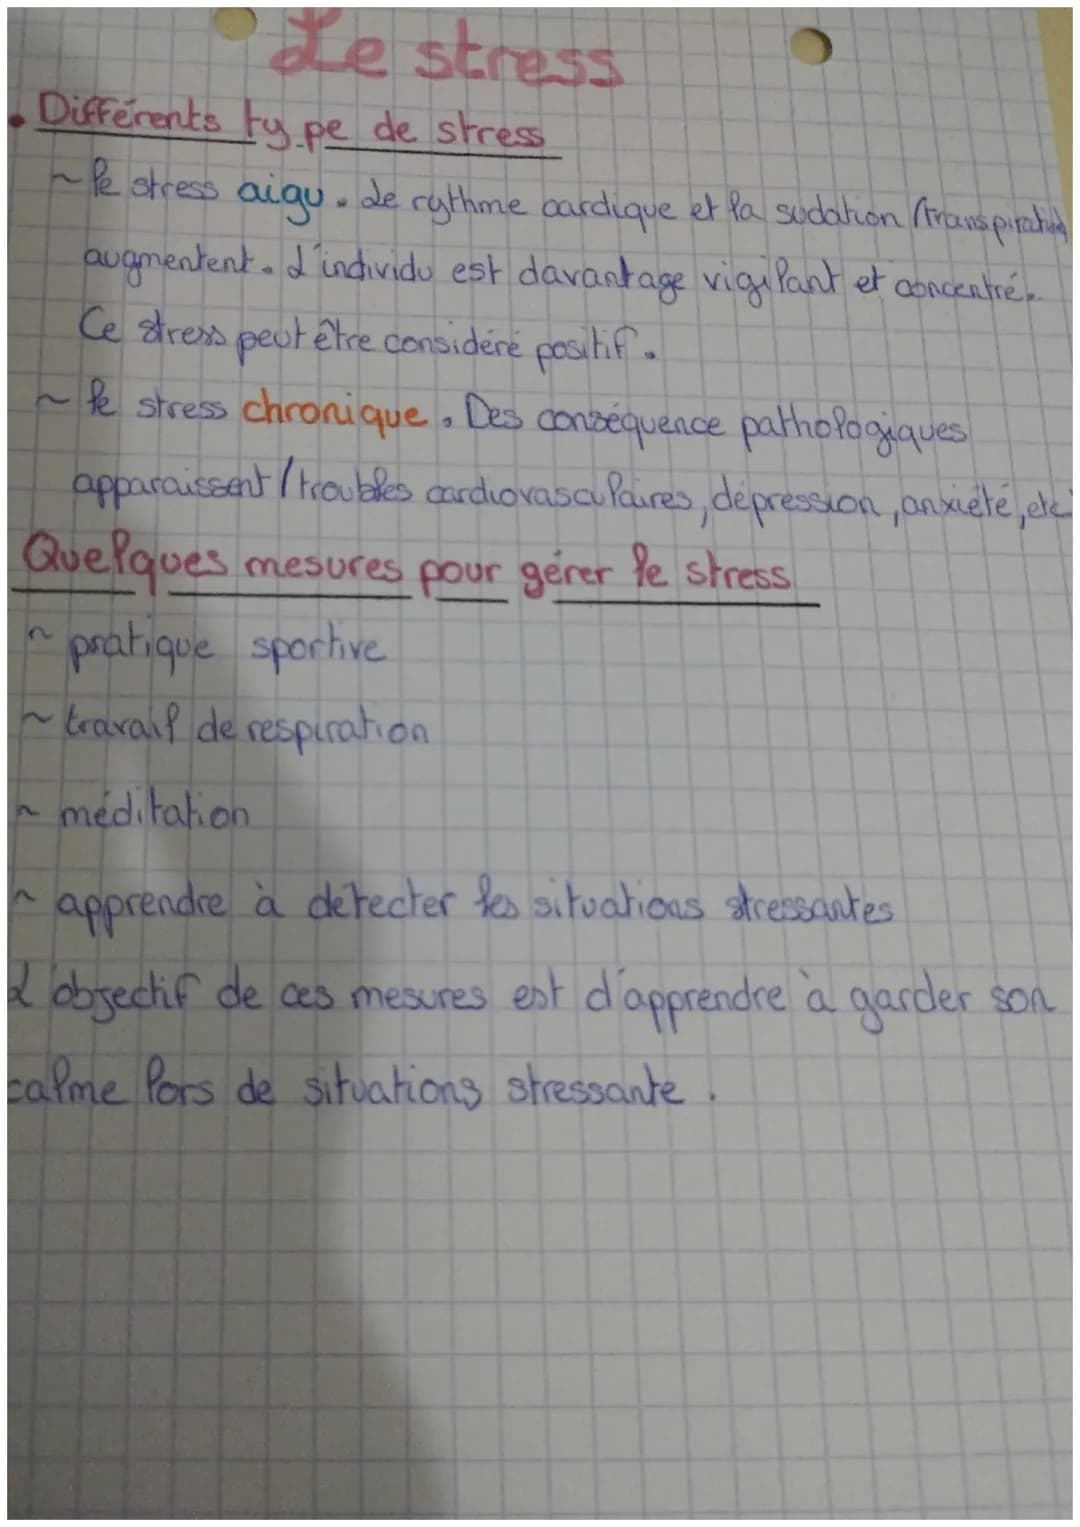 Le stress
• Différents type de stress
~ le stress aigu. Le rythme cardique et la sudation (transpiration)
augmentent. L'individu est davantage vigilant et concentré.
Ce stress peut être considéré positif.
~ le stress chronique. Des conséquence pathologiques
apparaissent (troubles cardiovasculaires, dépression, anxiété, etc
Quelques mesures pour gérer le stress
~ pratique sportive
~ travail de respiration
~ méditation
~ apprendre à détecter les situations stressantes
L'objectif de ces mesures est d'apprendre à garder son
calme lors de situations stressante.